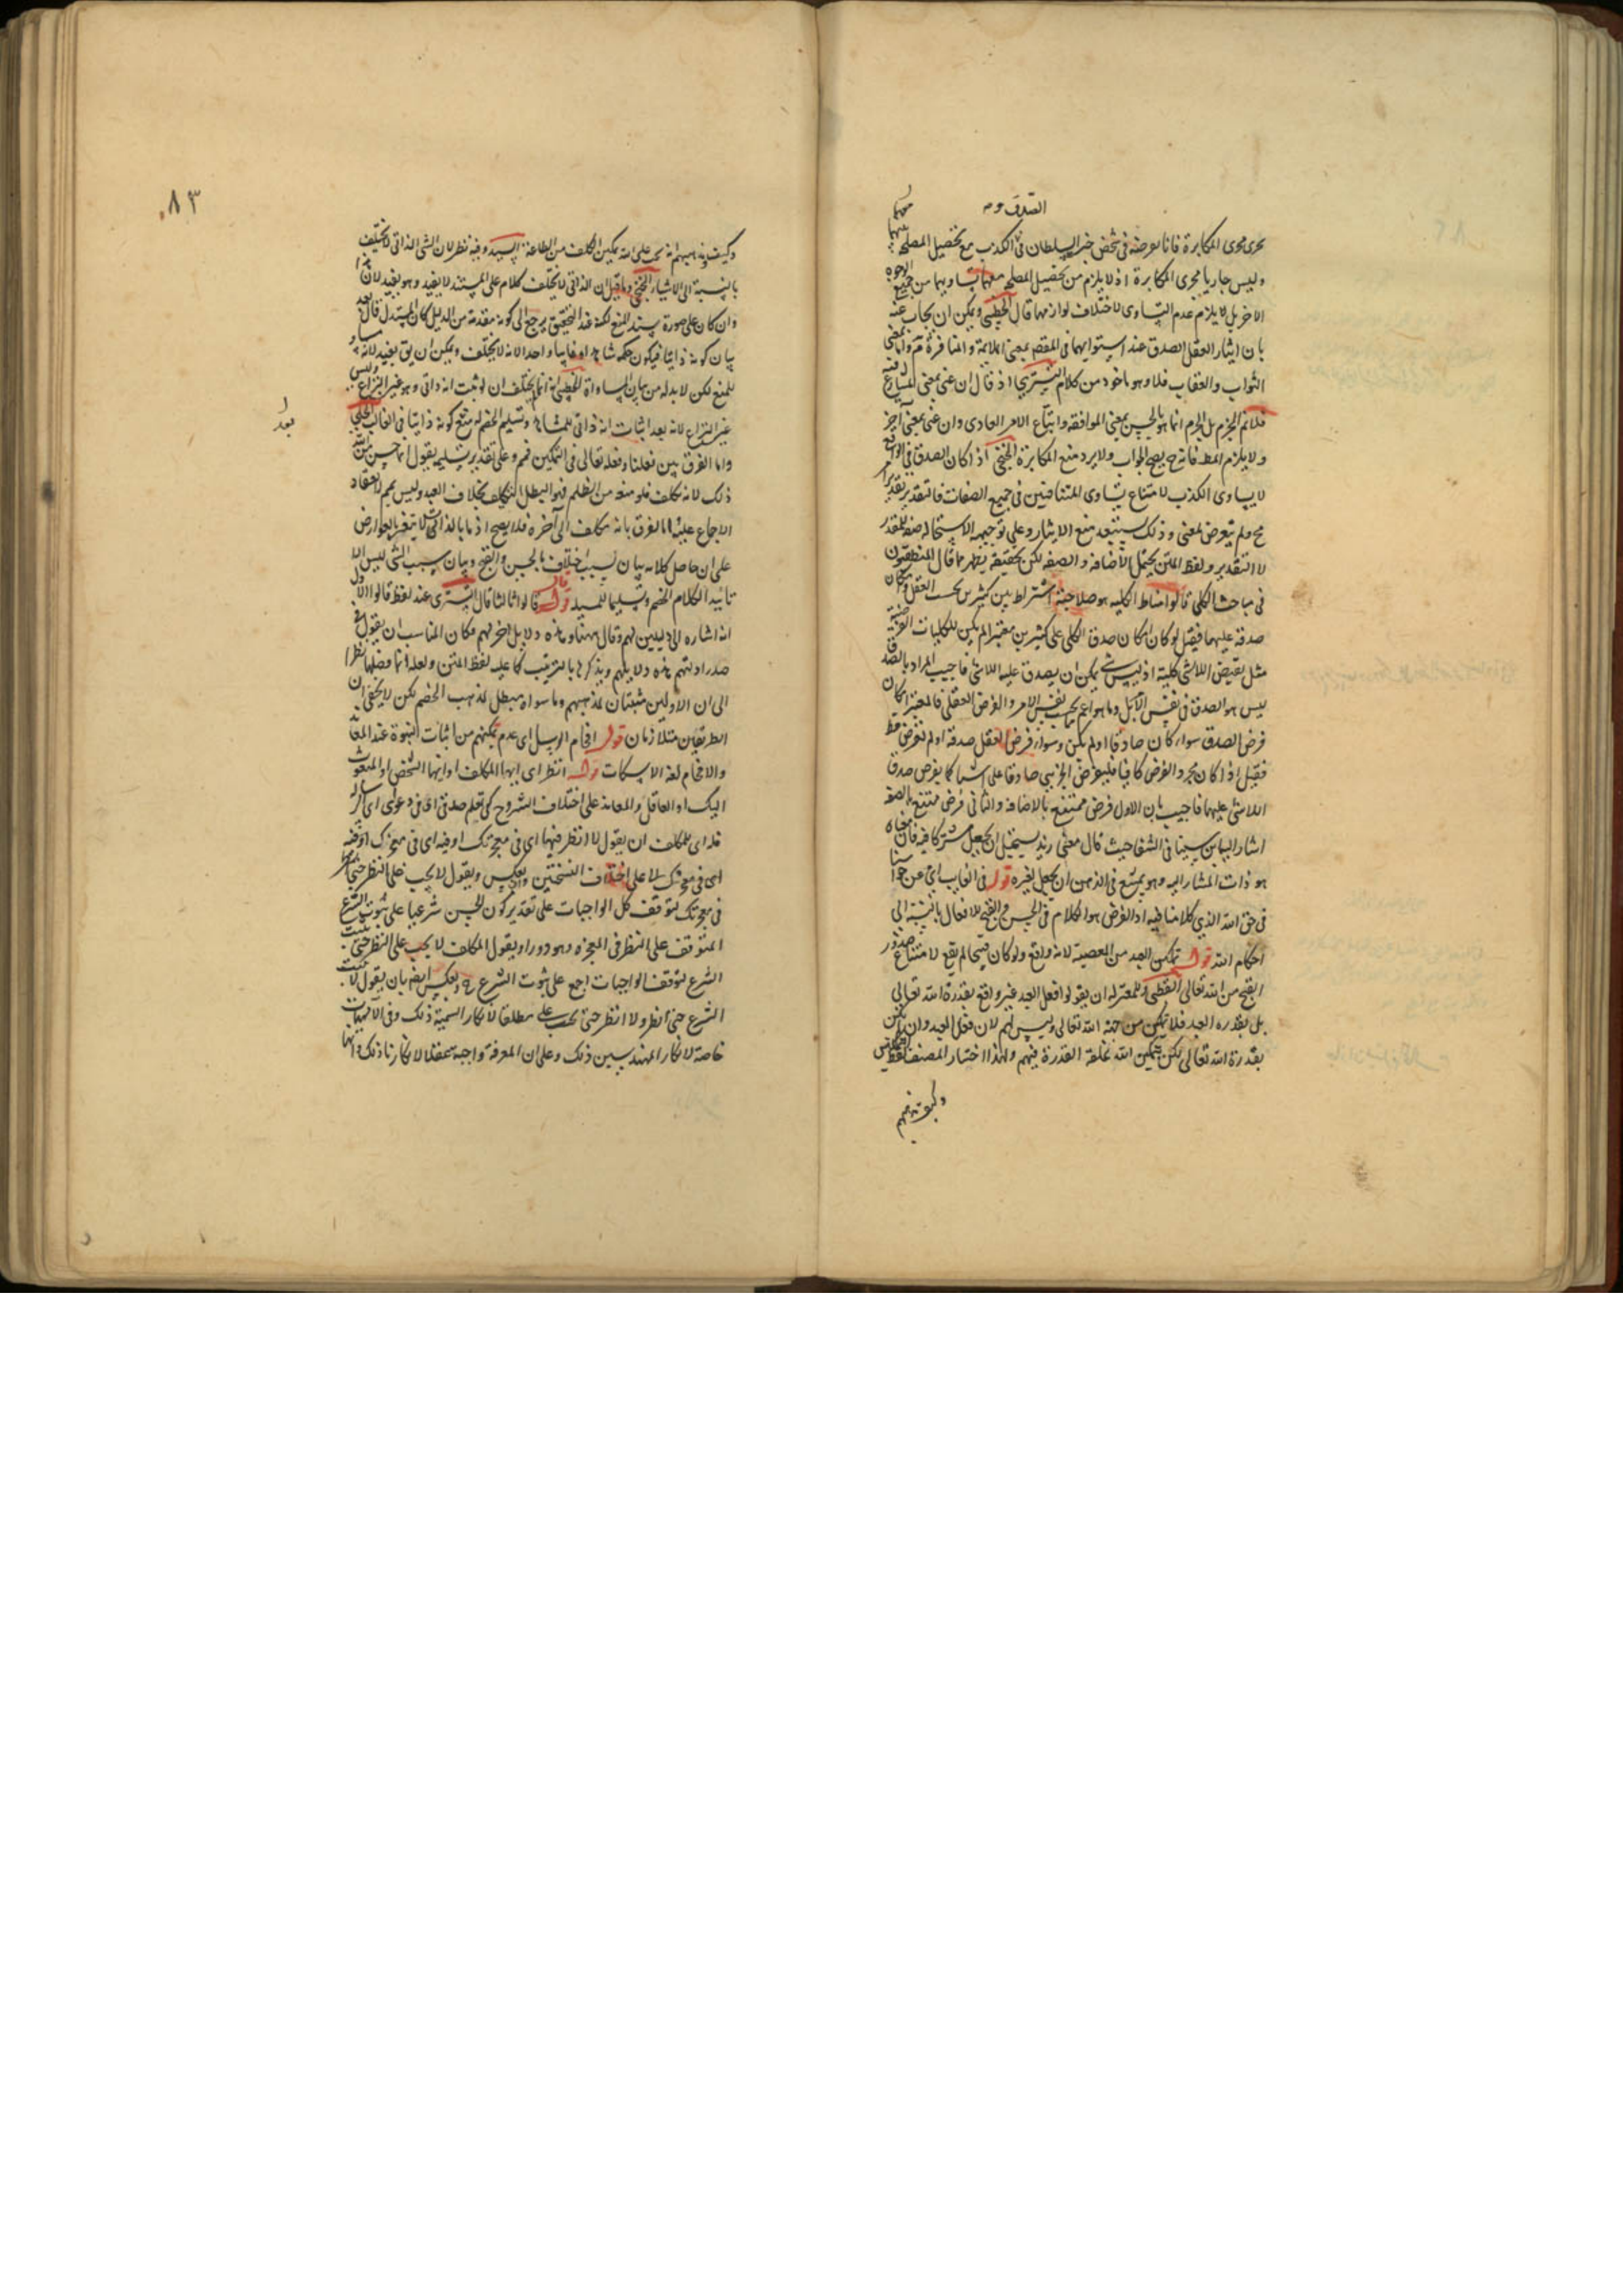 الصدق و
يجرى مجرى المكابرة فانا نعرضه فى شخص خير السلطان فى الكذب مع تحصيل المصلحة
وليس جاريا مجرى المكابرة اذ لا يلزم من تحصيل المصلحة تساويهما من جميع الوجوه
الاخر بل لا يلزم عدم التساوى لاختلاف لوازمهما قال الخطيبى ويمكن ان يجاب عنه
بان ايثار العقل الصدق عند استوائهما فى المقصد بمعنى الملائمة والمنافرة
الثواب والعقاب فلا وهو ماخوذ من كلام التسترى اذ قال ان عنى بمعنى
فلا نم الجزم بل الجزم انما هو بالحسن بمعنى الموافقة واتباع الامر العادى وان عنى بمعنى آخر
ولا يلزم المط فانه ح يصح الجواب ولا يرد منع المكابرة الخنجى اذا كان الصدق فى
لا يساوى الكذب لامتناع تساوى المتنافيين فى جميع الصفات فالتقدير تقدير
مح ولم يتعرض لمعنى وذلك سيتبعه منع الايثار وعلى توجيهه الاستحالة صفة للمقدر
لا التقدير ولفظ المتن يحتمل الاضافة والصفة لكن تحقيقه يظهر مما قال المنطقيون
فى مباحث الكلى قالوا مناط الكلية هو صلاحية اشتراط بين كثيرين بحسب العقل
صدقه عليهما فقيل لو كان امكان صدق الكلى على كثيرين معتبرا لم يكن للكليات الفرضية
مثل نقيض اللاشى كلية اذ ليس شى يمكن ان يصدق عليه اللاشى فاجيب المراد بالصدق
ليس هو الصدق فى نفس الامر بل وما هو اعم بحسب نفس الامر والفرض العقلى فالمعتبر امكان
فرض الصدق سواء كان صادقا او لم يكن وسواء فرض العقل صدقه او لم يفرض قط
فقيل اذا كان مجرد الفرض كافيا فليفرض الجزئى صادقا على اشياء كما يفرض صدق
اللاشى عليهما فاجيب بان الاول فرض ممتنع بالاضافة والثانى فرض ممتنع بالصفة
اشار اليه ابن سينا فى الشفا حيث قال معنى زيد يستحيل ان يجعل مشتركا فيه فان معناه
هو ذات المشار اليه وهو يمتنع فى الذهن ان يجعل لغيره قوله فى الغايب اى عن حواسنا
فى حق الله الذى كلامنا فيه اذ الغرض هو الكلام فى الحسن والقبح للافعال بالنسبة الى
احكام الله قوله تمكين العبد من المعصية لانه واقع ولو كان قبيحا لم يقع لامتناع صدور
القبح من الله تعالى القطبى وللمعتزلة ان يقولوا فعل العبد غير واقع بقدرة الله تعالى
بل بقدرة العبد فلا تمكين من جهة الله تعالى وليس لهم لان فعل العبد وان لم يكن
بقدرة الله تعالى لكن بتمكين الله بخلقه القدرة فيهم ولهذا اختار المصنف لفظ التمكين
وكيف ومذهبهم
٨٣
وكيف ومذهبهم انه يجب على الله تمكين المكلف من الطاعة السيد وفيه نظر لان الشى الذاتى لا يختلف
بالنسبة الى الاشياء الخنجى وما قيل ان الذاتى لا يختلف كلام على المستند لا يفيد وهو يفيد لان
وان كان على صورة سند المنع لكنه عند التحقيق يرجع الى كونه مقدمة من الدليل كان المستدل قال
بيان كونه ذاتيا فيكون حكمه شاهدا وغايبا واحدا لانه لا يختلف ويمكن ان يق يفيد لانه مساو
للمنع لكن لا بد له من بيان المساواة الخطيبى انه انما لم يختلف ان لو ثبت انه ذاتى وهو غير النزاع وليس
غير النزاع لانه بعد اثبات انه ذاتى للمشاهد وتسليم الخصم له منع كونه ذاتيا فى الغايب الحلى
بعد
واما الفرق بين فعلنا وفعله تعالى فى التمكين فمم وعلى تقدير تسليمه يقول انما حسن من الله
ذلك لانه مكلف فلو منعه من الظلم فهو المبطل التكليف بخلاف العبد وليس بمم لانعقاد
الاجماع عليه واما الفرق بانه مكلف الى آخره فلا يصح اذ ما بالذات لا يتغير بالعوارض
على ان حاصل كلامه بيان لسبب اختلاف الحسن والقبح وبيان سبب الشى ليس الا
تائيدا لكلام الخصم وتسليما للسيد قوله قالوا ثالثا قال التسترى عند لفظ قالوا اولا
انه اشارة الى دليلين لهم وقال ههنا وهذه دلايل اخر لهم وكان المناسب ان يقول فى
صدر ادلتهم هذه دلايلهم ويذكرها بالترتيب كما عليه لفظ المتن ولعله انما فصلها نظرا
الى ان الاولين مثبتان لمذهبهم وما سواه مبطل لمذهب الخصم لكن لا يخفى ان
الطريقين متلازمان قوله افحام الرسل اى عدم تمكينهم من اثبات النبوة عند
والافحام لغة الاسكات قوله انظر اى ايها المكلف او ايها الشخص او المبعوث
اليك او العاقل والمعاند على اختلاف الشروح كى تعلم صدقى اى فى دعوى
فله اى للمكلف ان يقول لا انظر فيها اى فى معجزتك او فيه اى فى معجزك
اى فى معجزتك لا على اختلاف النسختين وبالعكس ويقول لا يجب على النظر حتى
فى معجزتك لتوقف كل الواجبات على تقدير كون الحسن شرعيا على ثبوت الشرع
المتوقف على النظر فى المعجزة وهو دور او يقول المكلف لا يجب على النظر حتى يثبت
الشرع لتوقف الواجبات اجمع على ثبوت الشرع ح وبالعكس ايضا بان يقول لا يثبت
الشرع حتى انظر ولا انظر حتى يجب على مطلقا لانكار السمنية ذلك وفى الالهيات
خاصة لانكار المهندسين ذلك وعلى ان المعرفة واجبة عقلا لانكارنا ذلك وانها